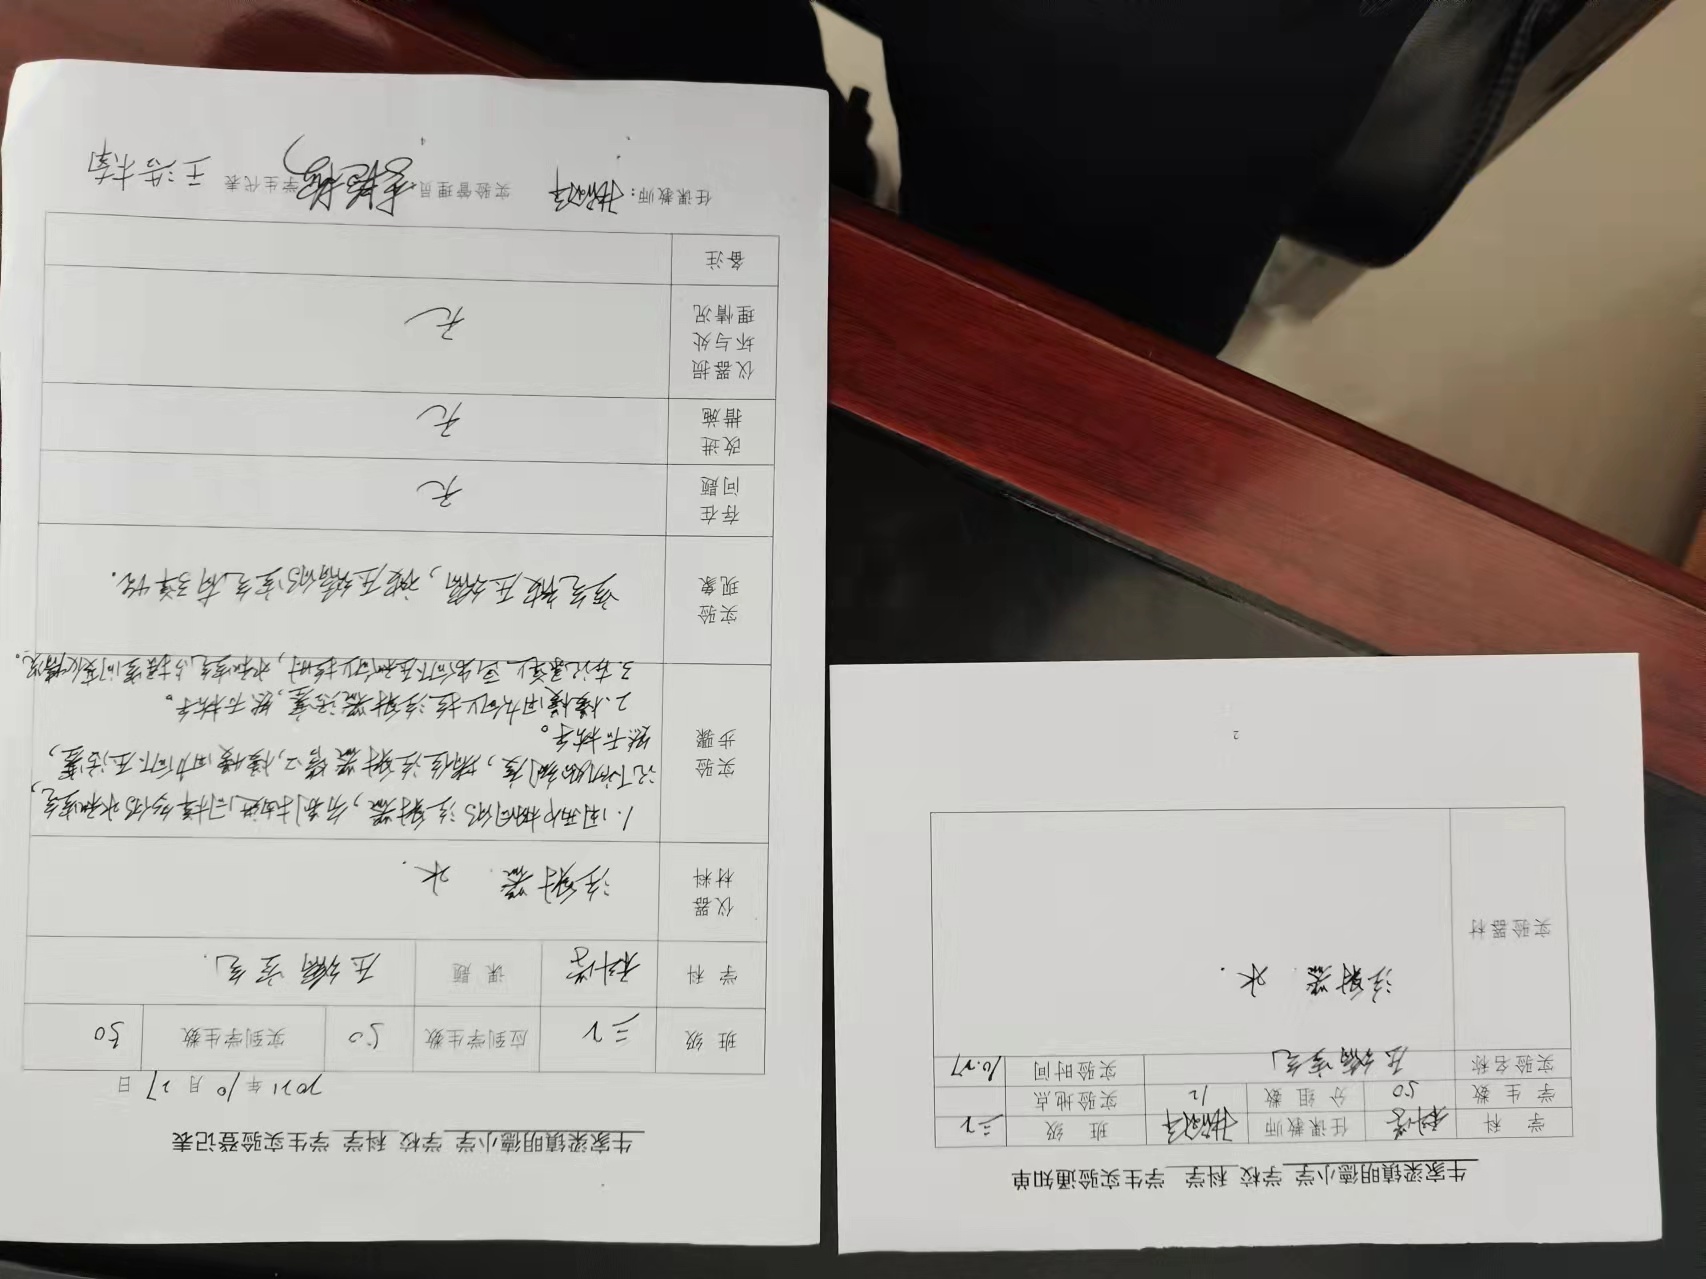 牛家梁镇明德小学 学校 科学 学生实验通知单
学 科 科学 任课教师 班 级 三2
学生数 50 分组数 12 实验地点
实验名称 压缩空气 实验时间 10.27
实验器材 注射器. 水.
2
牛家梁镇明德小学 学校 科学 学生实验登记表
2021年10月27日
班 级 三2 应到学生数 50 实到学生数 50
学 科 科学 课 题 压缩空气.
仪器材料 注射器. 水.
实验步骤
1.用两个相同的注射器,分别抽进同样多的水和空气,
记下初始刻度,堵住注射器管口,慢慢用力向下压活塞,
然后松手。
2.慢慢用力向上拉注射器活塞,然后松手。
3.在记录单上画出向下压和向上拉时,水和空气占据空间变化情况。
实验现象 空气被压缩,被压缩的空气有弹性.
存在问题 无
改进措施 无
仪器损坏与处理情况 无
备注
任课教师: 实验管理员: 学生代表 王浩楠